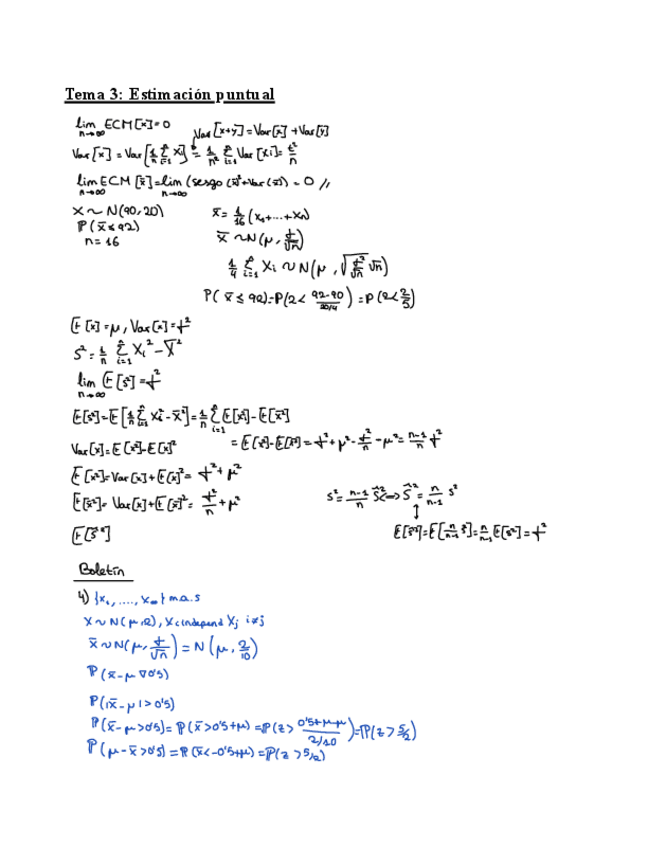 Tema 3: Estimación puntual
lim n→∞ ECM[x̄]=0
Var[x+y]=Var[x]+Var[y]
Var[x̄]=Var[1/n Σ_{i=1}^n Xi]=1/n² Σ_{i=1}^n Var[Xi]=σ²/n
lim n→∞ ECM[x̄]=lim n→∞ (sesgo(x̄)²+Var(x̄))=0 //
X~N(90,20)
x̄=1/16 (x₁+...+xn)
P(x̄≤92)
x̄~N(μ, σ/√n)
n=16
1/4 Σ_{i=1}^n Xi~N(μ, √(σ²/√n) √n)
P(x̄≤92)=P(z< (92-90)/(20/4))=P(z<2/5)
E[x]=μ, Var[x]=σ²
S²=1/n Σ_{i=1}^n Xi²-X̄²
lim n→∞ E[s²]=σ²
E[s²]=E[1/n Σ_{i=1}^n Xi²-x̄²]=1/n Σ_{i=1}^n E[x²]-E[x̄²]
=E[x²]-E[x̄²]=σ²+μ²-σ²/n-μ²=(n-1)/n σ²
Var[x]=E[x²]-E[x]²
E[x²]=Var[x]+E[x]²=σ²+μ²
E[x̄²]=Var[x̄]+E[x̄]²=σ²/n+μ²
s²=(n-1)/n ŝ²<=>ŝ²=n/(n-1) s²
↕
E[ŝ²]
E[ŝ²]=E[n/(n-1) s²]=n/(n-1) E[s²]=σ²
Boletín
4) {x₁,....,xn} m.a.s
X~N(μ,2), Xi independ Xj i≠j
x̄~N(μ, σ/√n)=N(μ, 2/10)
P(x̄-μ>0'5)
P(|x̄-μ|>0'5)
P(x̄-μ>0'5)=P(x̄>0'5+μ)=P(z> (0'5+μ-μ)/(2/10))=P(z>5/2)
P(μ-x̄>0'5)=P(x̄<-0'5+μ)=P(z>5/2)